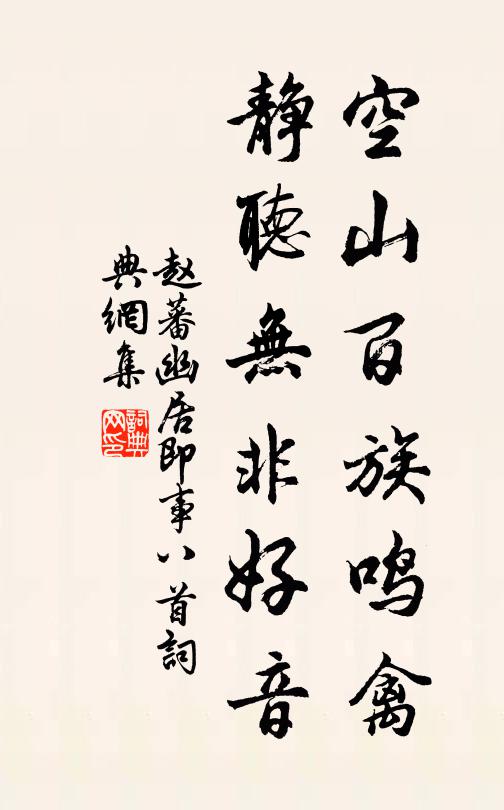 空山百族鸣禽
静聽無非好音
赵蕃幽居即事八首詞
典網集
詞典网印